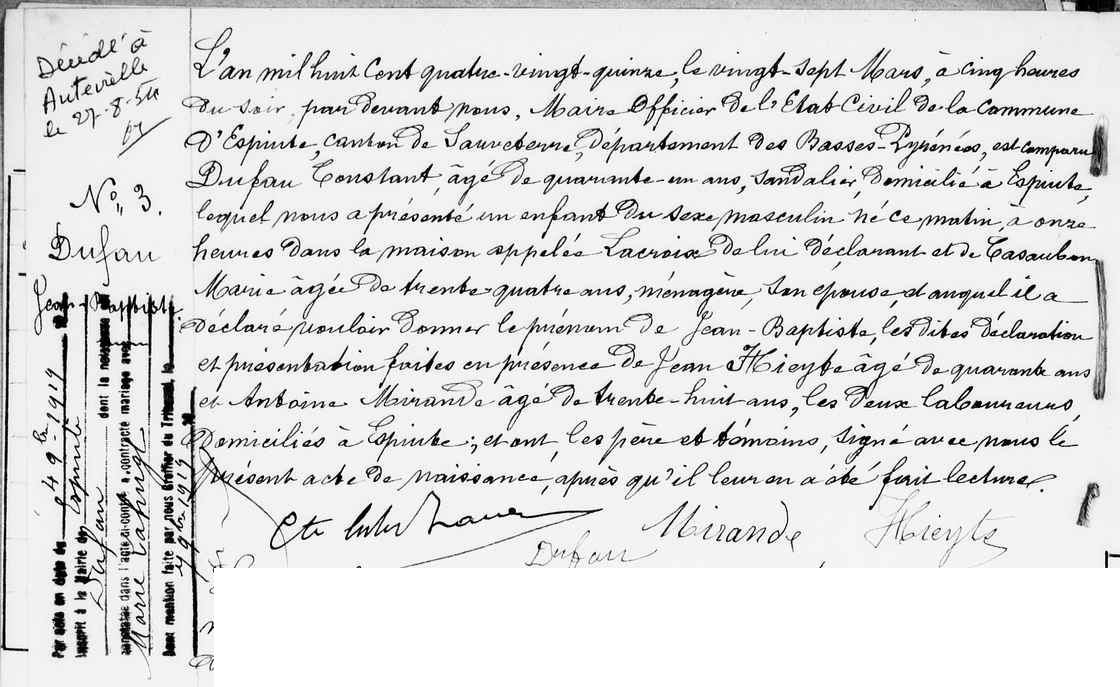 Décédé à
Autevielle
le 27-8-54
No 3.
Dufau
Jean-Baptiste
L'an mil huit cent quatre-vingt-quinze, le vingt-sept Mars, à cinq heures
du soir, par devant nous, Maire Officier de l'Etat Civil de la commune
d'Espiute, canton de Sauveterre, département des Basses-Pyrénées, est comparu
Dufau Constant, âgé de quarante-un ans, sandalier, domicilié à Espiute,
lequel nous a présenté un enfant du sexe masculin né ce matin, à onze
heures dans la maison appelée Lacroix de lui déclarant et de Casaubon
Marie âgée de trente-quatre ans, ménagère, son épouse, et auquel il a
déclaré vouloir donner le prénom de Jean-Baptiste, les dites déclaration
et présentation faites en présence de Jean Hieyte âgé de quarante ans
et Antoine Mirande âgé de trente-huit ans, les deux laboureurs,
domiciliés à Espiute; et ont les père et témoins, signé avec nous le
présent acte de naissance, après qu'il leur en a été fait lecture.
Mirande Hieyte
Dufau
Par acte en date du 9bre 1919
inscrit à la Mairie de Espiute
Dufau dont la naissance est
constatée dans l'acte ci-contre a contracté mariage avec
Marie
Dont mention faite par nous Greffier du Tribunal, le
9bre 1919